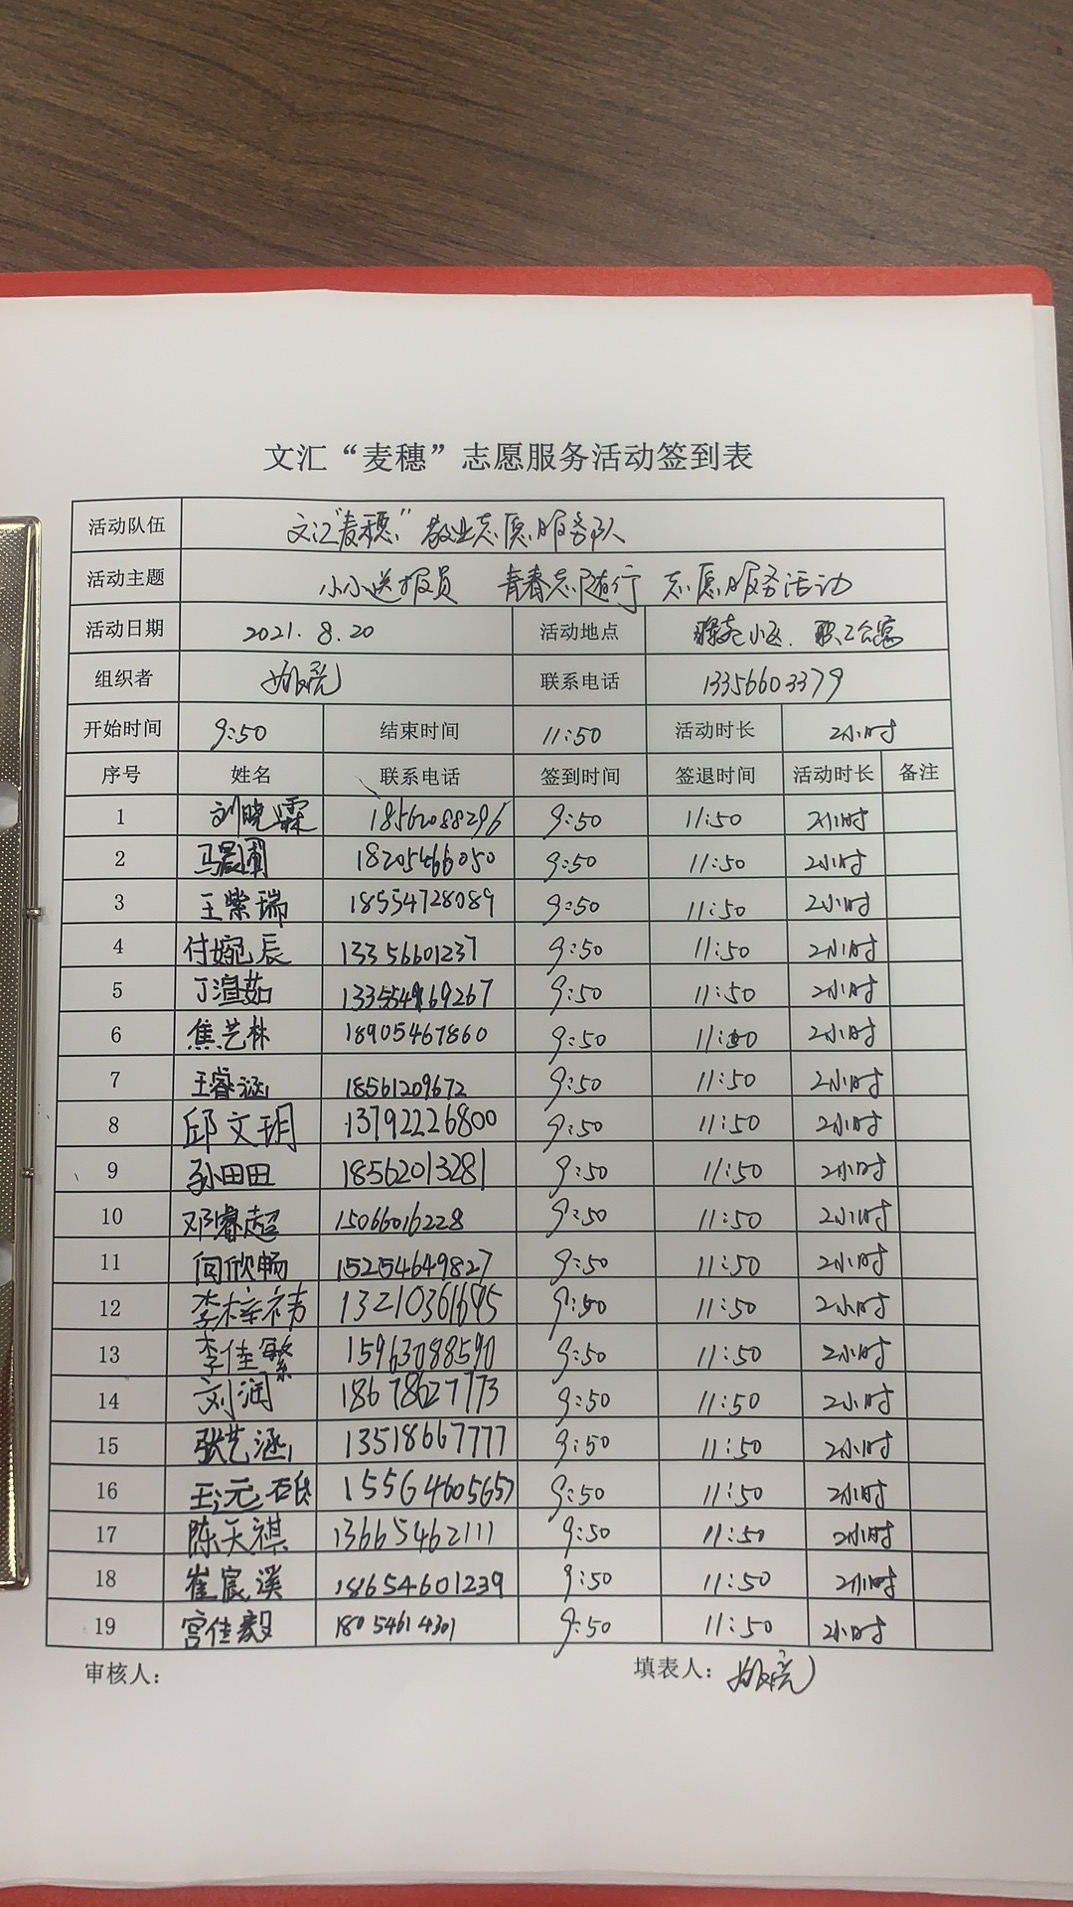 文汇“麦穗”志愿服务活动签到表
活动队伍 文汇“麦穗”敬业志愿服务队
活动主题 小小送报员 青春志随行 志愿服务活动
活动日期 2021.8.20 活动地点 小区、职工公寓
组织者 联系电话 13356603379
开始时间 9:50 结束时间 11:50 活动时长 2小时
序号 姓名 联系电话 签到时间 签退时间 活动时长 备注
1 刘晓霖 18562088296 9:50 11:50 2小时
2 马晨圃 18205466050 9:50 11:50 2小时
3 王紫瑞 18554728089 9:50 11:50 2小时
4 付婉辰 13356601237 9:50 11:50 2小时
5 丁渲茹 9:50 11:50 2小时
6 焦艺林 18905467860 9:50 11:50 2小时
7 王睿涵 18561209672 9:50 11:50 2小时
8 邱文玥 13792226800 9:50 11:50 2小时
9 孙田田 18562013281 9:50 11:50 2小时
10 邓睿超 15066016228 9:50 11:50 2小时
11 闫欣畅 15254649827 9:50 11:50 2小时
12 李梓祎 13210361695 9:50 11:50 2小时
13 李佳繁 15963088590 9:50 11:50 2小时
14 刘润 18678627773 9:50 11:50 2小时
15 张艺涵 13518667777 9:50 11:50 2小时
16 15564605657 9:50 11:50 2小时
17 陈天祺 13665462111 9:50 11:50 2小时
18 崔宸溪 18654601239 9:50 11:50 2小时
19 宫佳毅 18054614301 9:50 11:50 2小时
审核人： 填表人：